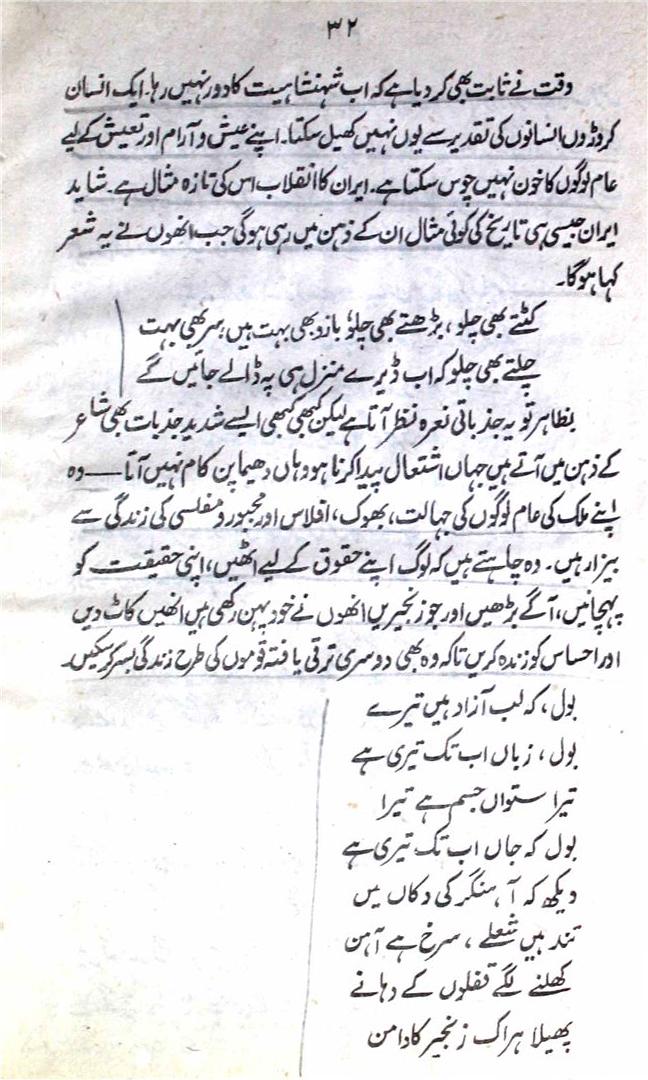 ۳۲
وقت نے ثابت بھی کر دیا ہے کہ اب شہنشاہیت کا دور نہیں رہا۔ ایک انسان
کروڑوں انسانوں کی تقدیر سے یوں نہیں کھیل سکتا۔ اپنے عیش و آرام اور تعیش کے لیے
عام لوگوں کا خون نہیں چوس سکتا ہے۔ ایران کا انقلاب اس کی تازہ مثال ہے۔ شاید
ایران جیسی ہی تاریخ کی کوئی مثال ان کے ذہن میں رہی ہوگی جب انھوں نے یہ شعر
کہا ہوگا۔
کٹتے بھی چلو، بڑھتے بھی چلو بازو بھی بہت ہیں سر بھی بہت
چلتے بھی چلو کہ اب ڈیرے منزل ہی پہ ڈالے جائیں گے
بظاہر تو یہ جذباتی نعرہ نظر آتا ہے لیکن کبھی کبھی ایسے شدید جذبات بھی شاعر
کے ذہن میں آتے ہیں جہاں اشتعال پیدا کرنا ہو وہاں دھیما پن کام نہیں آتا — وہ
اپنے ملک کی عام لوگوں کی جہالت، بھوک، افلاس اور مجبور و مفلسی کی زندگی سے
بیزار ہیں۔ وہ چاہتے ہیں کہ لوگ اپنے حقوق کے لیے اٹھیں، اپنی حقیقت کو
پہچانیں، آگے بڑھیں اور جو زنجیریں انھوں نے خود پہن رکھی ہیں انھیں کاٹ دیں
اور احساس کو زندہ کریں تاکہ وہ بھی دوسری ترقی یافتہ قوموں کی طرح زندگی بسر کر سکیں۔
بول، کہ لب آزاد ہیں تیرے
بول، زباں اب تک تیری ہے
تیرا ستواں جسم ہے تیرا
بول کہ جاں اب تک تیری ہے
دیکھ کہ آہنگر کی دکاں میں
تند ہیں شعلے، سرخ ہے آہن
کھلنے لگے قفلوں کے دہانے
پھیلا ہر اک زنجیر کا دامن